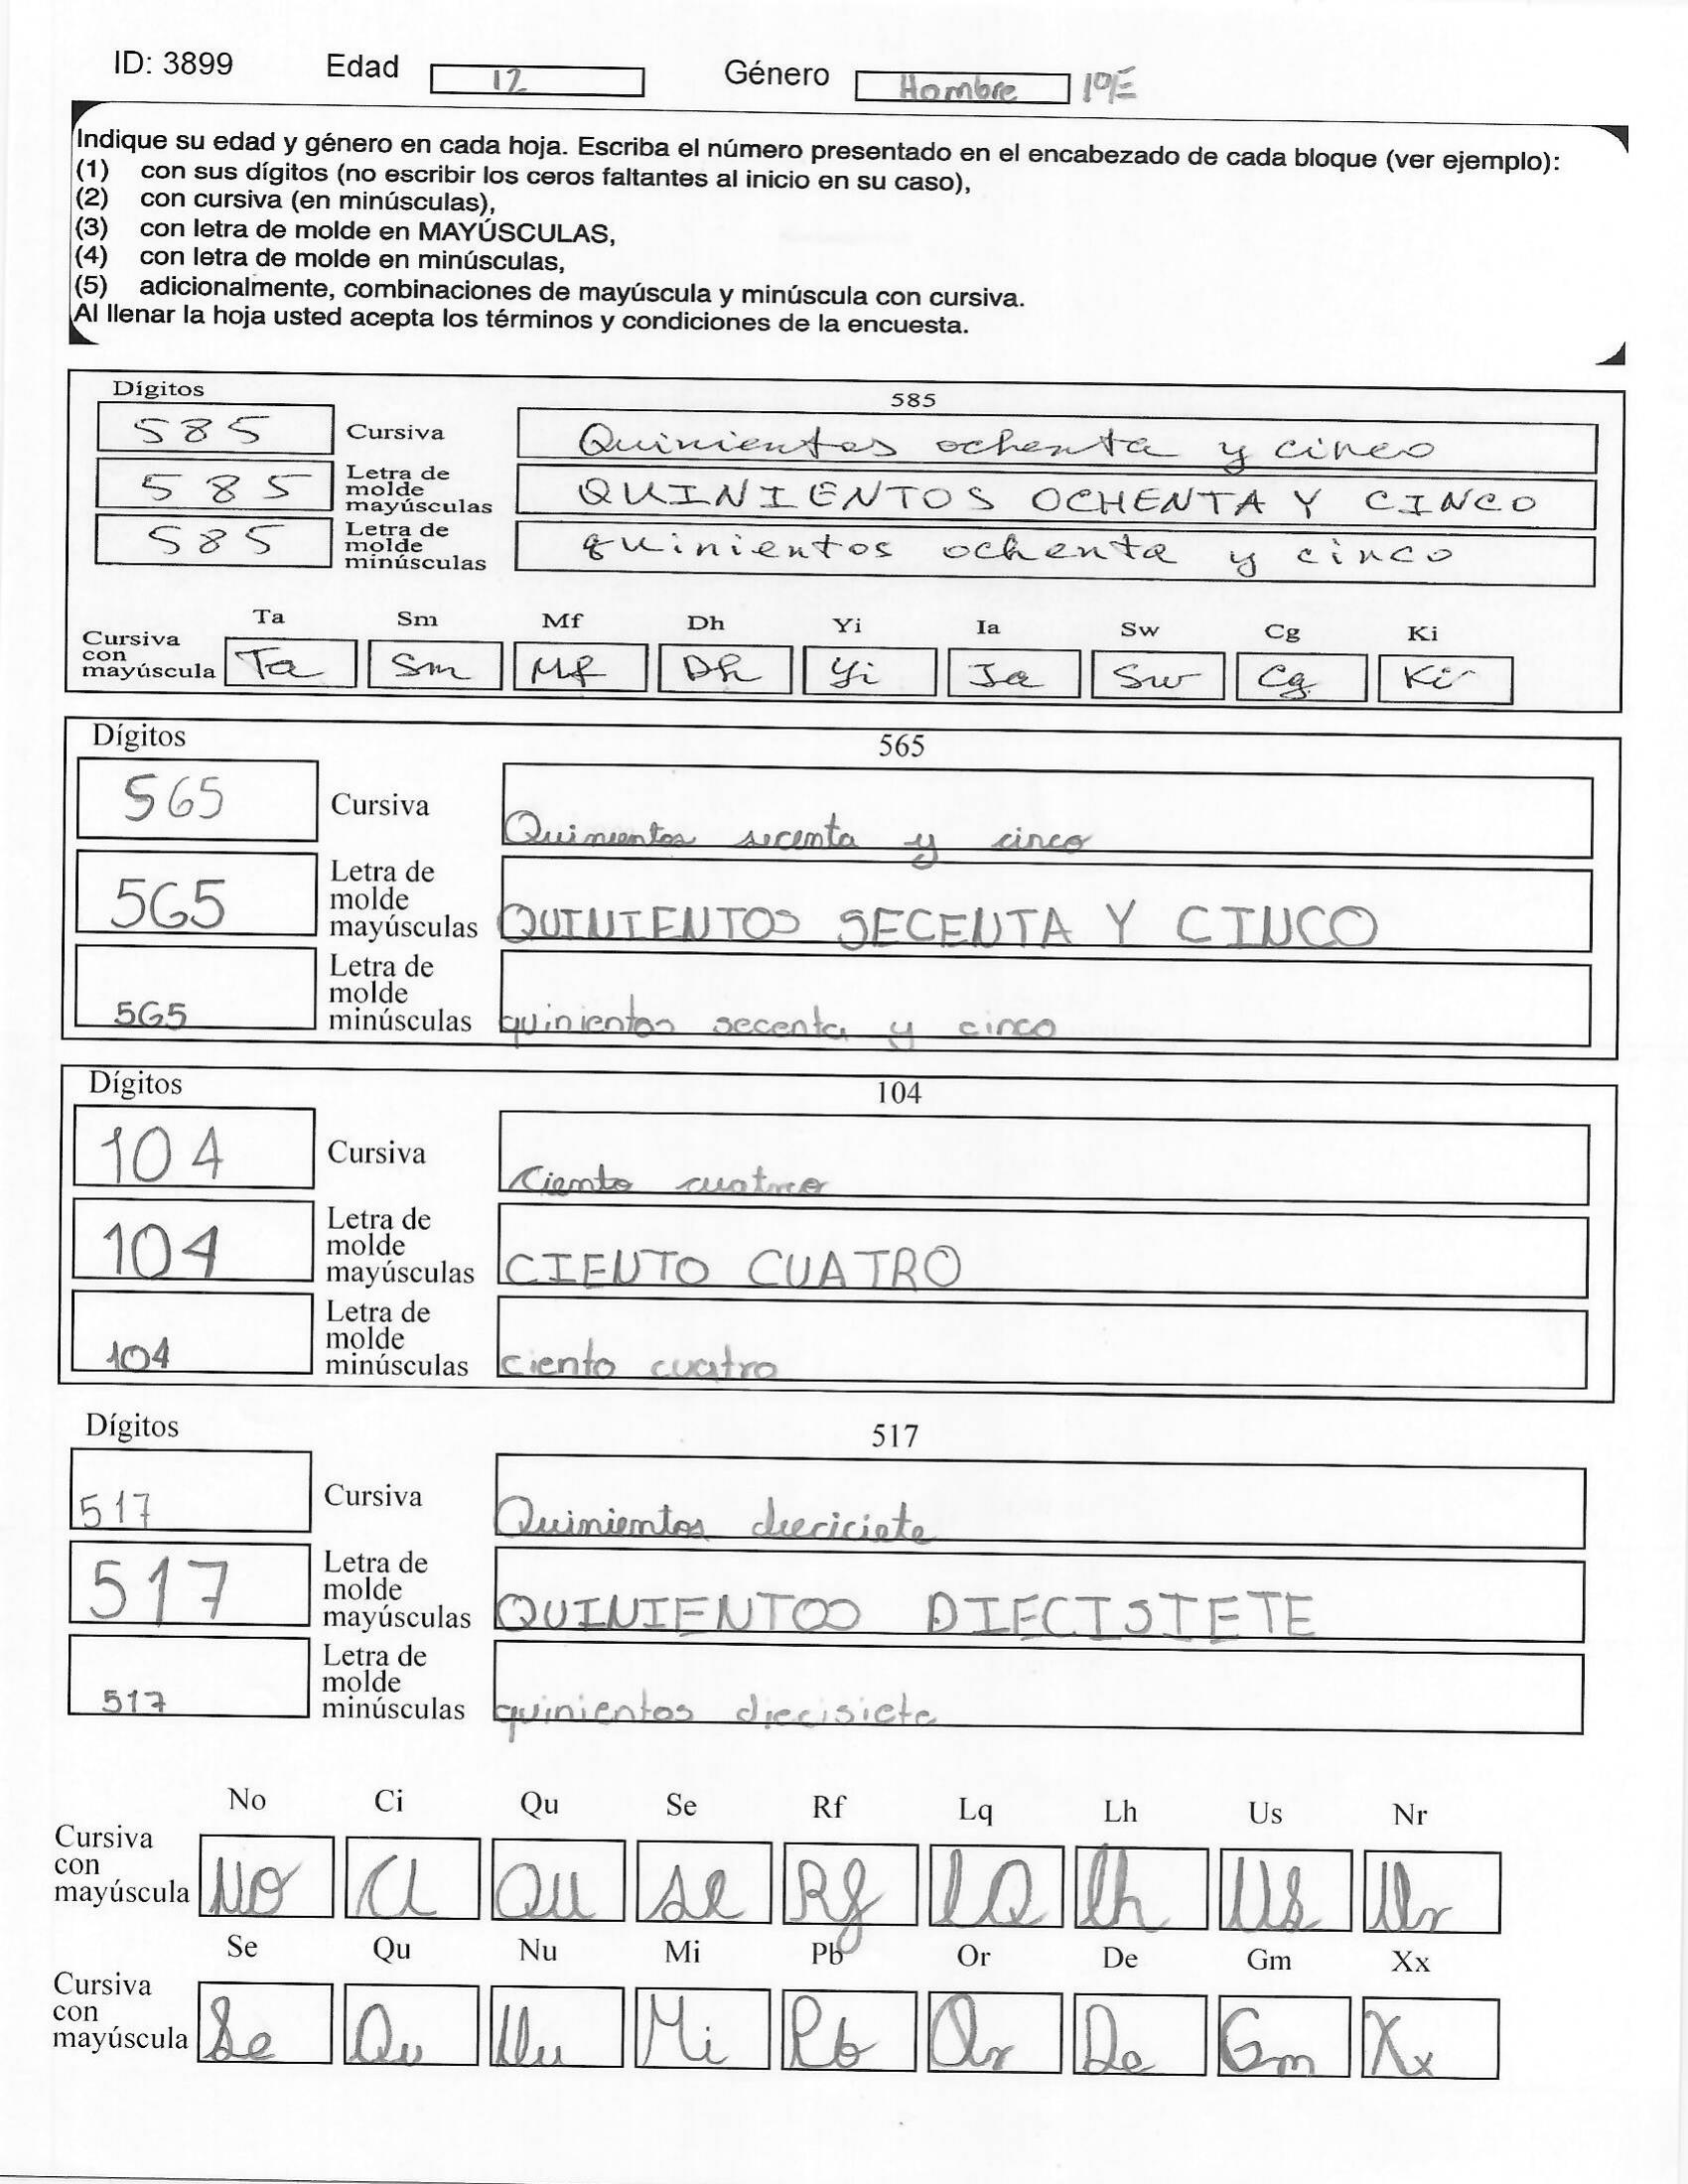 ID: 3899 Edad 12 Género Hombre 1ºE
Indique su edad y género en cada hoja. Escriba el número presentado en el encabezado de cada bloque (ver ejemplo):
(1) con sus dígitos (no escribir los ceros faltantes al inicio en su caso),
(2) con cursiva (en minúsculas),
(3) con letra de molde en MAYÚSCULAS,
(4) con letra de molde en minúsculas,
(5) adicionalmente, combinaciones de mayúscula y minúscula con cursiva.
Al llenar la hoja usted acepta los términos y condiciones de la encuesta.
Dígitos 585
585 Cursiva Quinientos ochenta y cinco
585 Letra de molde mayúsculas QUINIENTOS OCHENTA Y CINCO
585 Letra de molde minúsculas quinientos ochenta y cinco
Ta Sm Mf Dh Yi Ia Sw Cg Ki
Cursiva con mayúscula Ta Sm Mf Dh Yi Ia Sw Cg Ki
Dígitos 565
565 Cursiva Quinientos secenta y cinco
565 Letra de molde mayúsculas QUINIENTOS SECENTA Y CINCO
565 Letra de molde minúsculas quinientos secenta y cinco
Dígitos 104
104 Cursiva Ciento cuatro
104 Letra de molde mayúsculas CIENTO CUATRO
104 Letra de molde minúsculas ciento cuatro
Dígitos 517
517 Cursiva Quinientos dieciciete
517 Letra de molde mayúsculas QUINIENTOS DIECISIETE
517 Letra de molde minúsculas quinientos diecisiete
No Ci Qu Se Rf Lq Lh Us Nr
Cursiva con mayúscula No Ci Qu Se Rf lQ lh Us Nr
Se Qu Nu Mi Pb Or De Gm Xx
Cursiva con mayúscula Se Qu Nu Mi Pb Or De Gm Xx